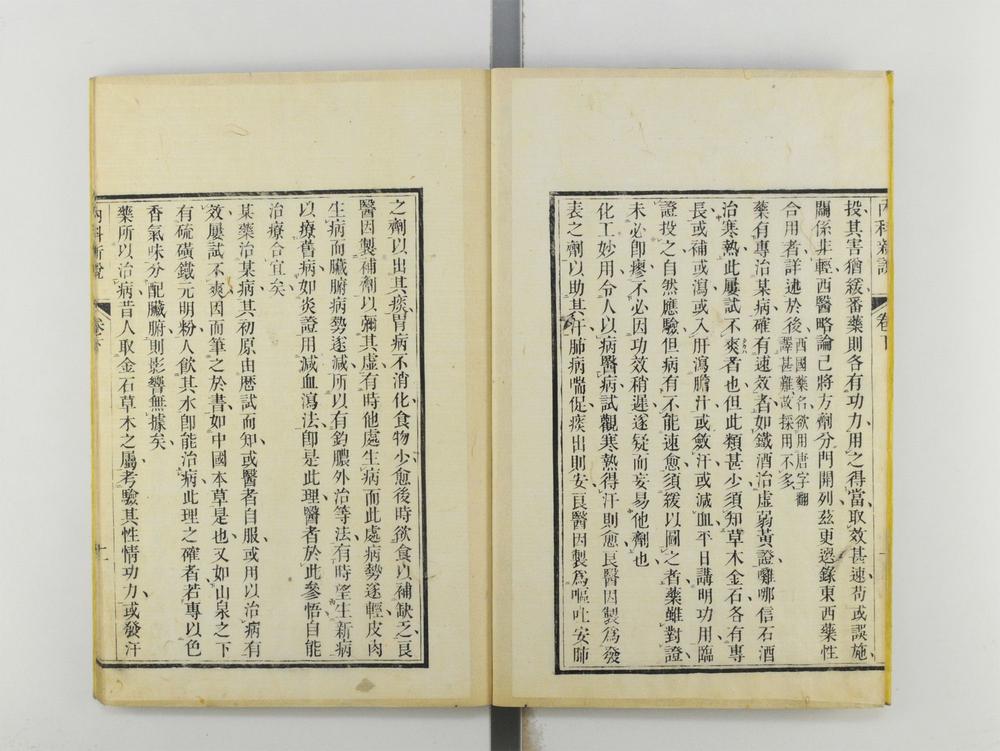 內科新說 卷下
投其害猶緩番藥則各有功力用之得當取效甚速苟或誤施
關係非輕西醫略論已將方劑分門開列茲更選錄東西藥性
合用者詳述於後西國藥名欲用唐字翻譯甚難故採用不多
藥有專治某病確有速效者如鐵酒治虛弱黃證囉哪信石酒
治寒熱此屢試不爽者也但此類甚少須知草木金石各有專
長或補或瀉或入肝瀉膽汁或斂汗或減血平日講明功用臨
證投之自然應驗但病有不能速愈須緩以圖之者藥雖對證
未必卽瘳不必因功效稍遲遂疑而妄易他劑也
化工妙用令人以病醫病試觀寒熱得汗則愈良醫因製爲發
表之劑以助其汗肺病喘促痰出則安良醫因製爲嘔吐安肺
之劑以出其痰胃病不消化食物少愈後時欲食以補缺乏良
醫因製補劑以彌其虛有時他處生病而此處病勢遂輕皮肉
生病而臟腑病勢遂減所以有釣膿外治等法有時望生新病
以療舊病如炎證用減血瀉法卽是此理醫者於此參悟自能
治療合宜矣
某藥治某病其初原由歷試而知或醫者自服或用以治病有
效屢試不爽因而筆之於書如中國本草是也又如山泉之下
有硫磺鐵元明粉人飲其水卽能治病此理之確者若專以色
香氣味分配臟腑則影響無據矣
藥所以治病昔人取金石草木之屬考驗其性情功力或發汗
內科新說 卷下 十一